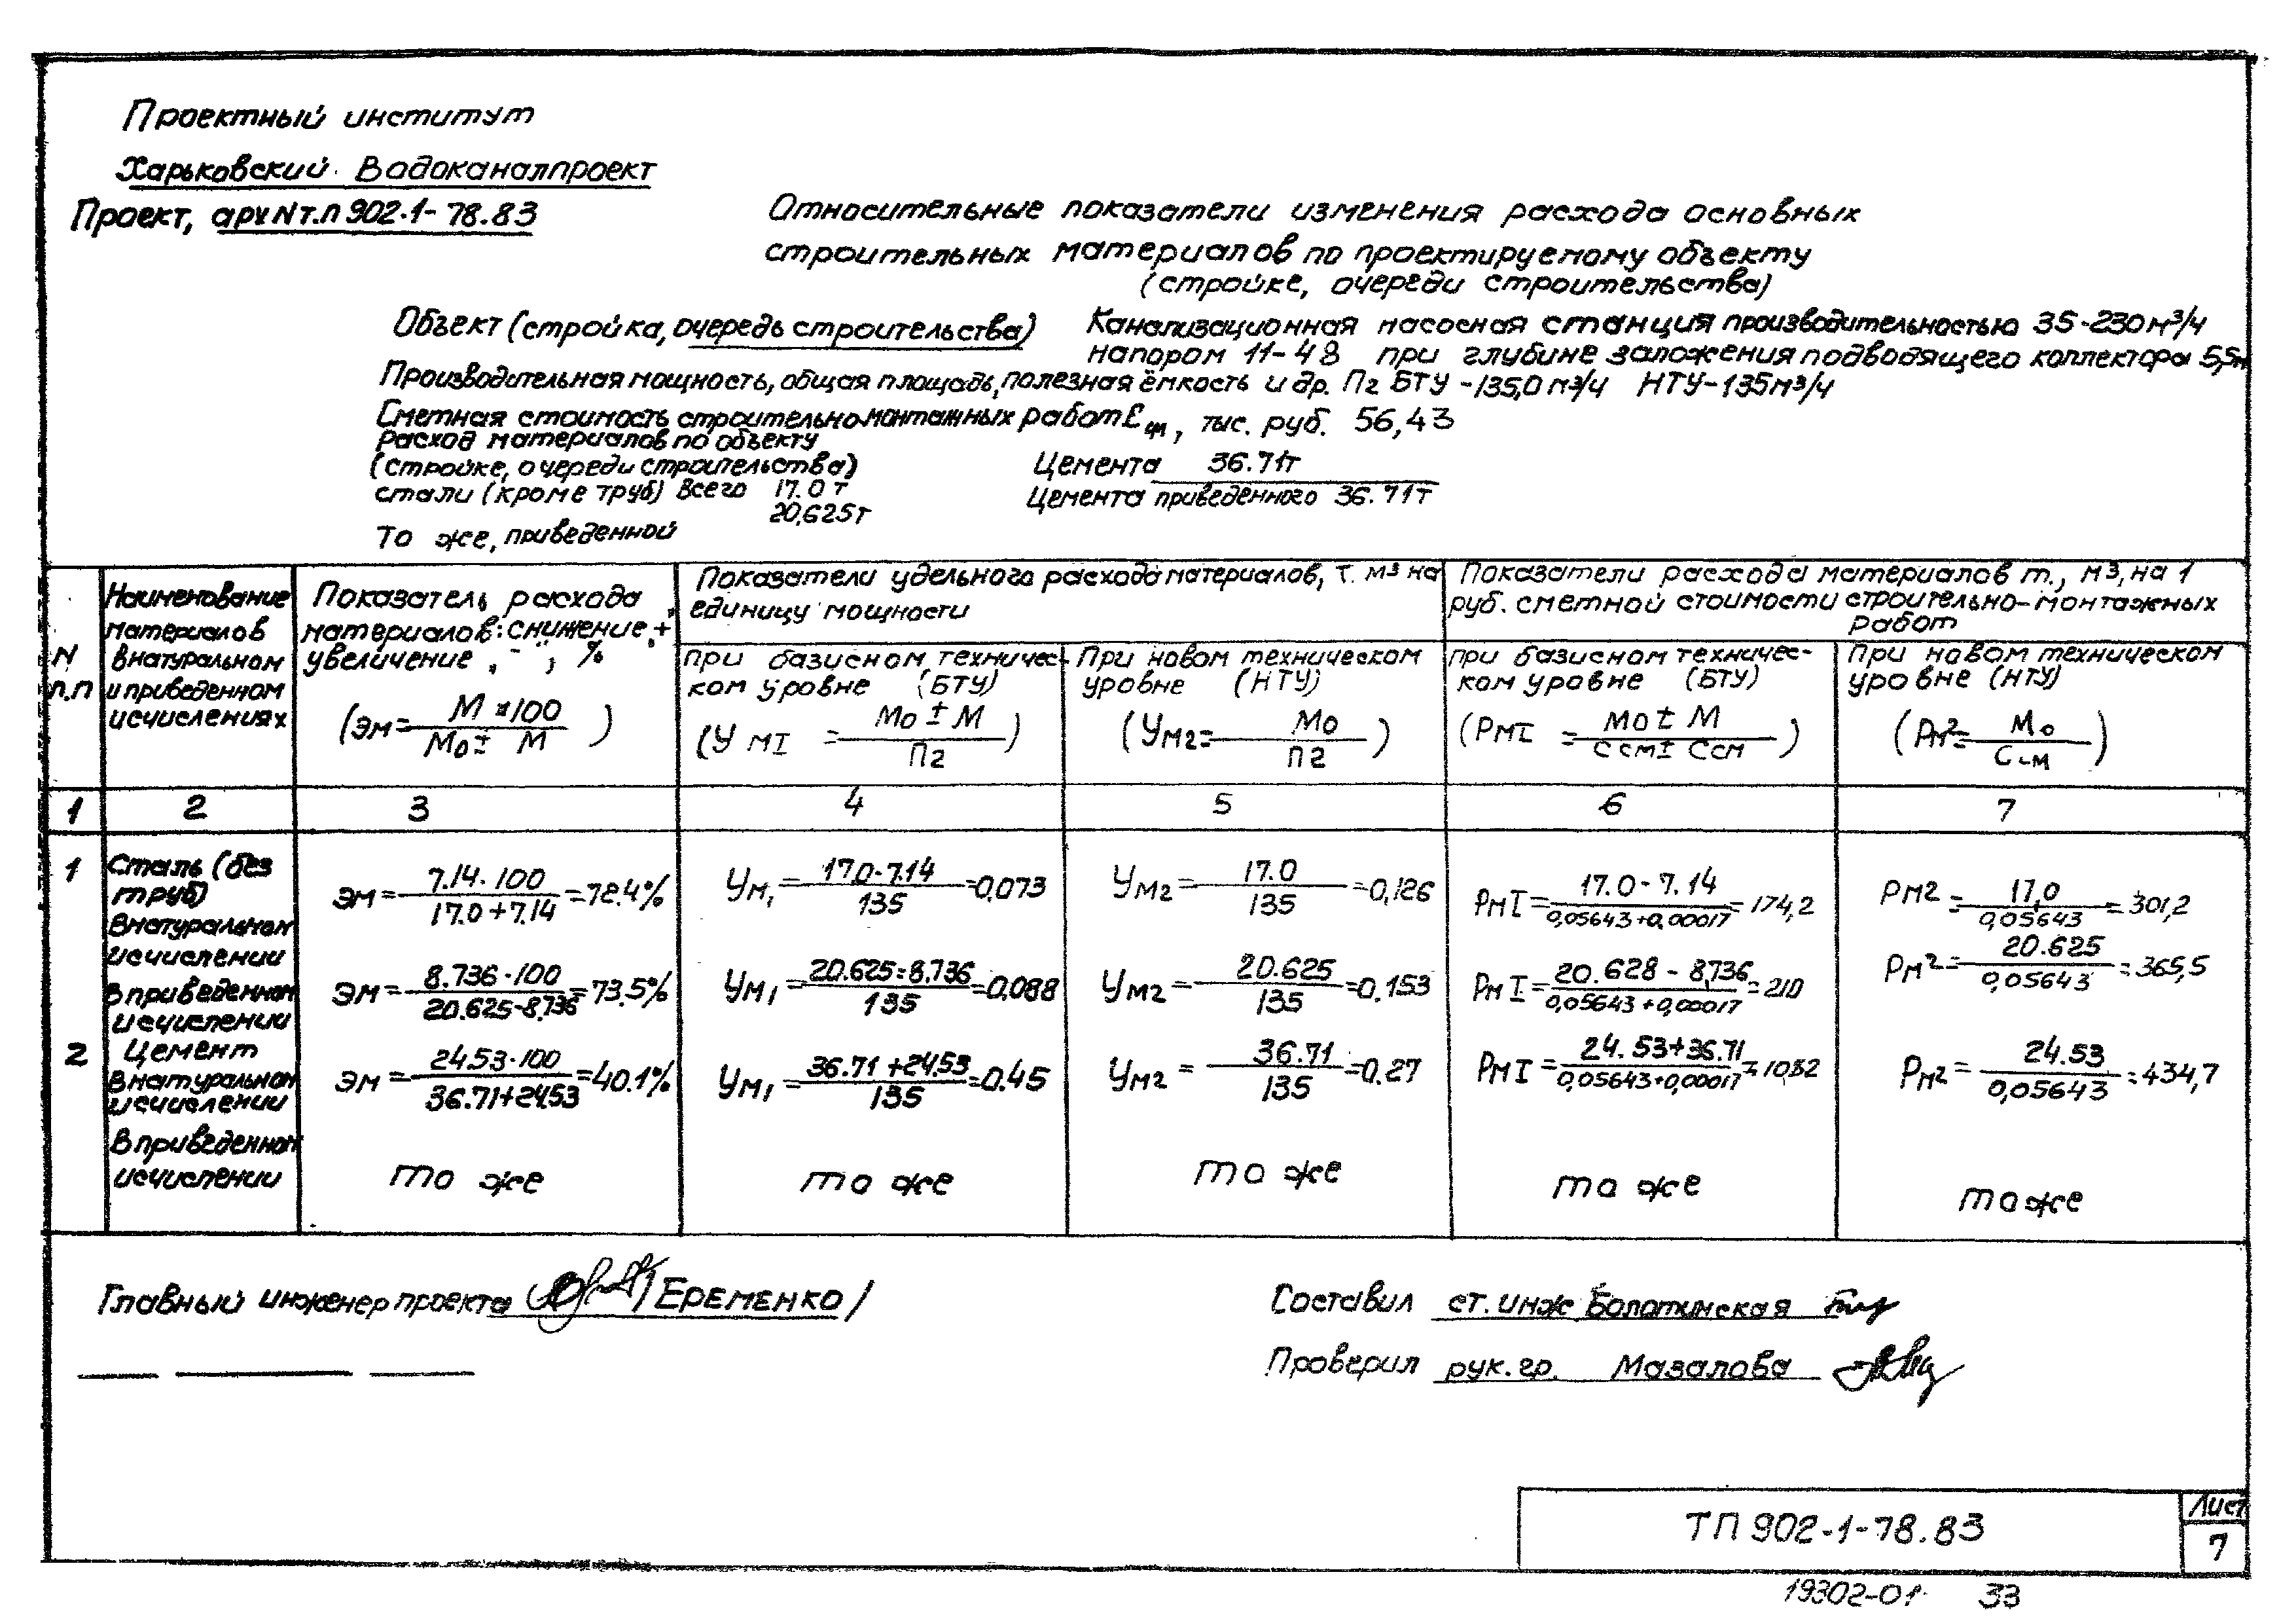 Проектный институт
Харьковский Водоканалпроект
Проект, арх N т.п 902.1-78.83
Относительные показатели изменения расхода основных
строительных материалов по проектируемому объекту
(стройке, очереди строительства)
Объект (стройка, очередь строительства) Канализационная насосная станция производительностью 35-230 м³/ч
напором 11-48 при глубине заложения подводящего коллектора 5,5м
Производительная мощность, общая площадь, полезная ёмкость и др. Пг БТУ -135,0 м³/ч НТУ-135м³/ч
Сметная стоимость строительно-монтажных работ Ссм, тыс. руб. 56,43
Расход материалов по объекту
(стройке, очереди строительства) Цемента 36.71т
стали (кроме труб) всего 17.0 т Цемента приведенного 36.71т
20.625т
То же, приведенной
N п.п
Наименование
материалов
в натуральном
и приведенном
исчислениях
Показатель расхода
материалов: снижение „+
увеличение „-“, %
(Эм= М × 100 / Мо ± М)
Показатели удельного расхода материалов, т. м³ на
единицу мощности
при базисном техничес-
ком уровне (БТУ)
(У м1 = Мо ± М / П2)
При новом техническом
уровне (НТУ)
(Ум2= Мо / П2)
Показатели расхода материалов т., м³, на 1
руб. сметной стоимости строительно-монтажных
работ
при базисном техничес-
ком уровне (БТУ)
(Рм1 = Мо ± М / Ссм ± Ссм)
При новом техническом
уровне (НТУ)
(Рм2= Мо / Ссм)
1 2 3 4 5 6 7
1 Сталь (без
труб)
В натуральном
исчислении
Эм= 7.14·100 / 17.0+7.14 =72.4%
Ум1= 17.0-7.14 / 135 =0,073
Ум2= 17.0 / 135 =0,126
Рм1= 17.0-7.14 / 0,05643+0,00017 =174,2
Рм2= 17,0 / 0,05643 =301,2
В приведенном
исчислении
Эм= 8.736·100 / 20.625-8.736 =73.5%
Ум1= 20.625=8,736 / 135 =0,088
Ум2= 20.625 / 135 =0.153
Рм1= 20.628-8,736 / 0,05643+0,00017 =210
Рм2= 20.625 / 0,05643 =365,5
2 Цемент
В натуральном
исчислении
Эм= 24.53·100 / 36.71+24.53 =40.1%
Ум1= 36.71+24.53 / 135 =0.45
Ум2= 36.71 / 135 =0.27
Рм1= 24.53+36.71 / 0,05643+0,00017 =1082
Рм2= 24.53 / 0,05643 =434,7
В приведенном
исчислении
то же то же то же то же то же
Главный инженер проекта /Еременко/
Составил ст. инж Болотинская
Проверил рук. гр. Мазалова
ТП 902-1-78.83
Лист
7
19302-01 33